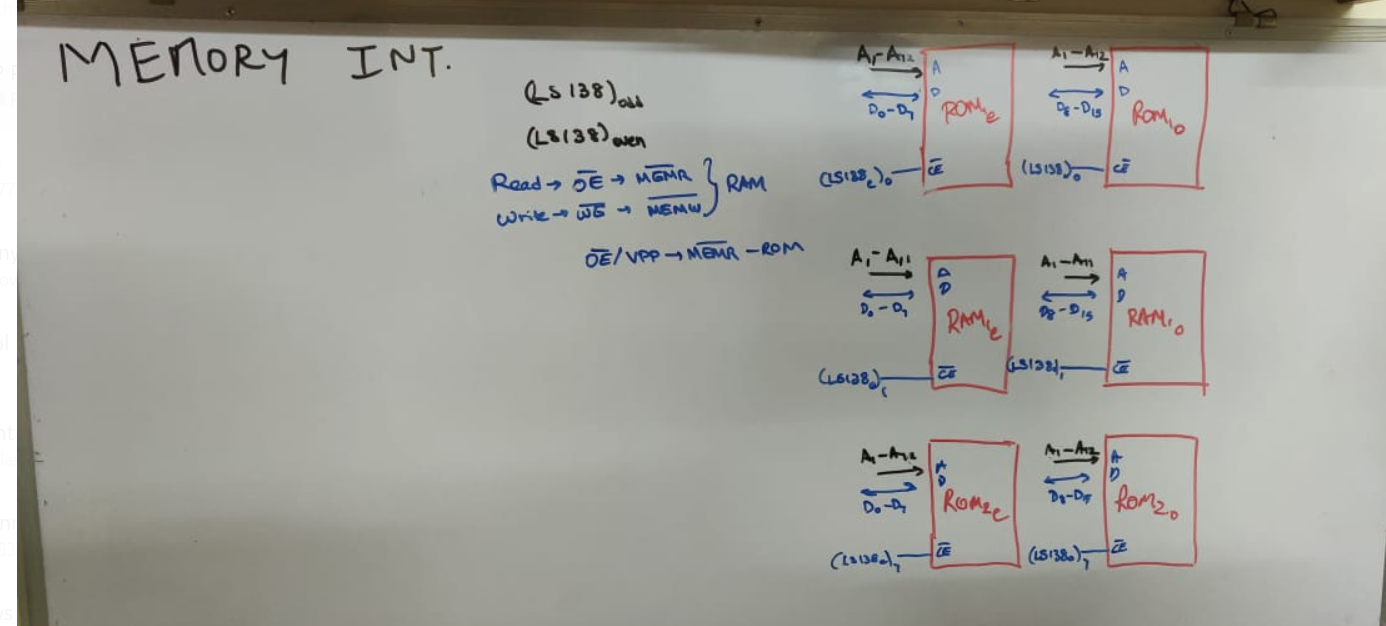 MEMORY INT.
(LS138)odd
(LS138)even
Read → OE → MEMR } RAM
Write → WE → MEMW
OE/VPP → MEMR - ROM
A1-A12
A
D0-D7
D
ROM1e
(LS138e)0
CE
A1-A12
A
D8-D15
D
ROM1o
(LS138)0
CE
A1-A11
A
D0-D7
D
RAM1e
(LS138e)1
CE
A1-A11
A
D8-D15
D
RAM1o
(LS138)1
CE
A1-A12
A
D0-D7
D
ROM2e
(LS138e)7
CE
A1-A12
A
D8-D15
D
ROM2o
(LS138o)7
CE